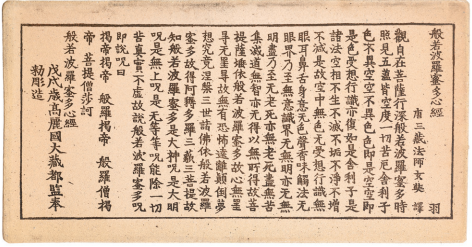 般若波羅蜜多心經 羽
唐三藏法師玄奘 譯
觀自在菩薩行深般若波羅蜜多時
照見五蘊皆空度一切苦厄舍利子
色不異空空不異色色即是空空即
是色受想行識亦復如是舍利子是
諸法空相不生不滅不垢不淨不增
不減是故空中無色無受想行識無
眼耳鼻舌身意無色聲香味觸法無
眼界乃至無意識界無無明亦無無
明盡乃至無老死亦無老死盡無苦
集滅道無智亦無得以無所得故菩
提薩埵依般若波羅蜜多故心無罣
礙無罣礙故無有恐怖遠離顛倒夢
想究竟涅槃三世諸佛依般若波羅
蜜多故得阿耨多羅三藐三菩提故
知般若波羅蜜多是大神呪是大明
呪是無上呪是無等等呪能除一切
苦真實不虛故說般若波羅蜜多呪
即說呪曰
揭帝揭帝 般羅揭帝 般羅僧揭
帝 菩提僧莎訶
般若波羅蜜多心經
戊戌歲高麗國大藏都監奉
勅彫造